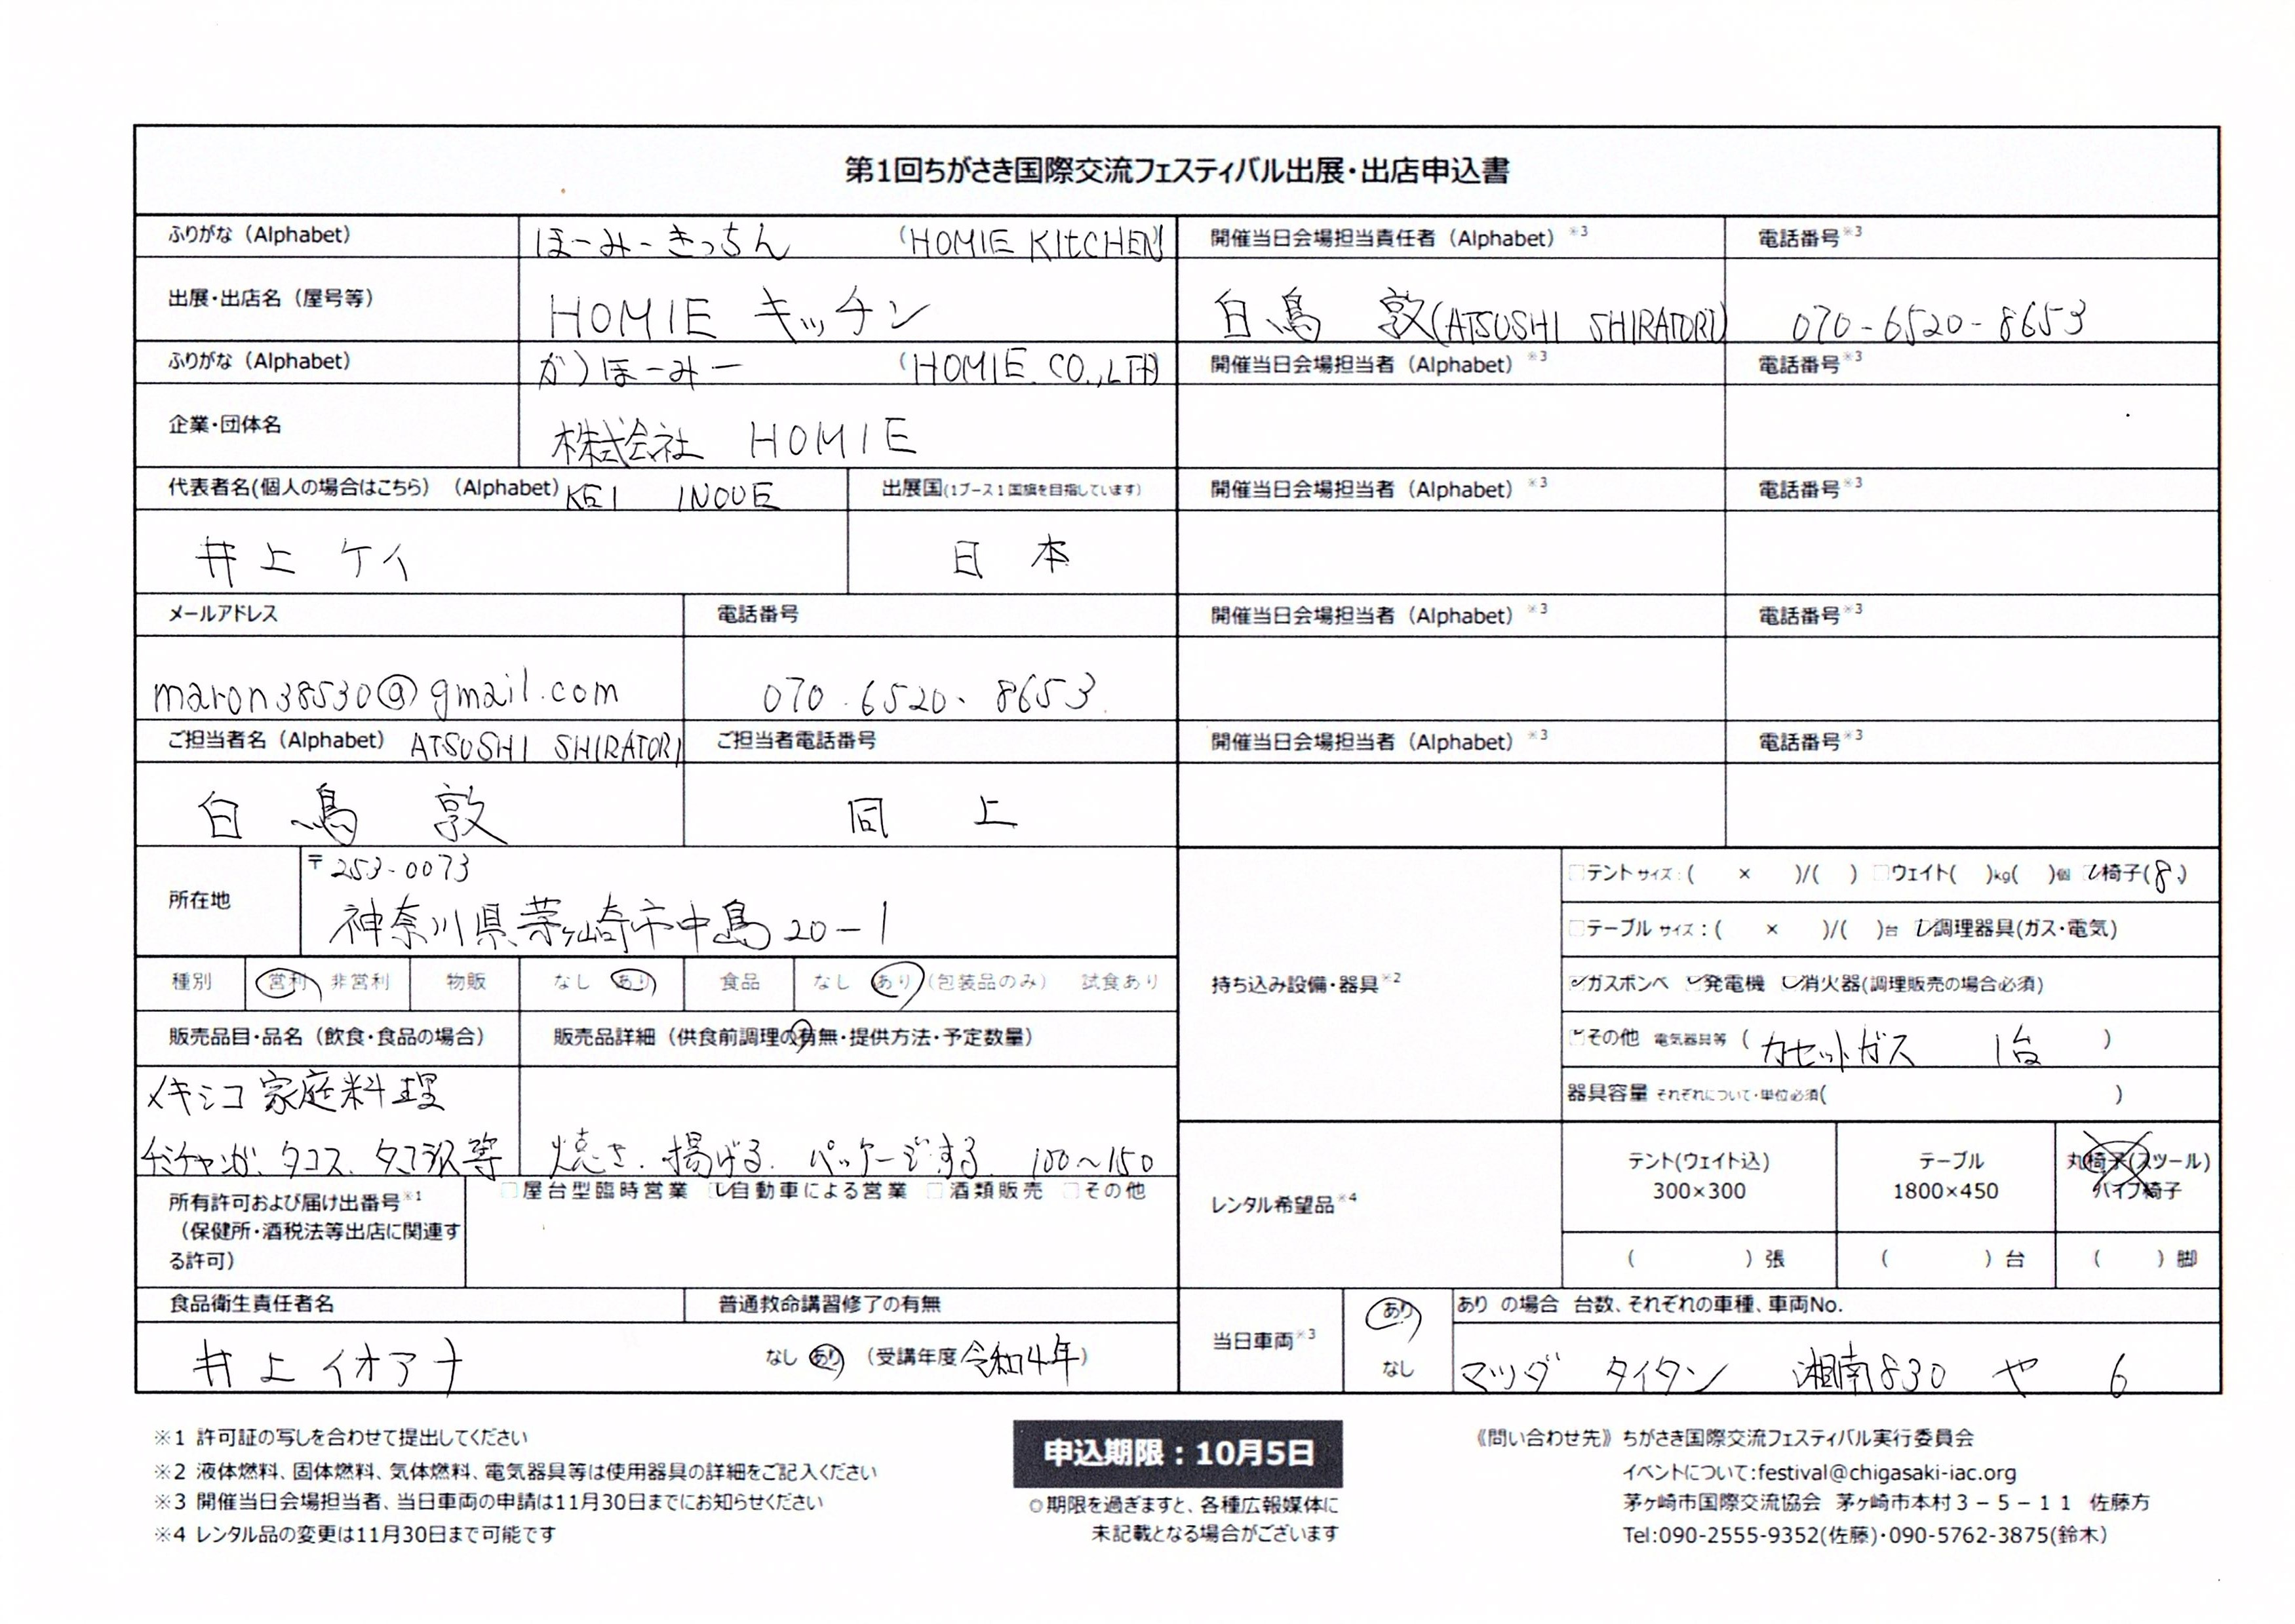 第1回ちがさき国際交流フェスティバル出展・出店申込書
ふりがな（Alphabet） ほーみーきっちん （HOMIE KITCHEN）
出展・出店名（屋号等） HOMIE キッチン
ふりがな（Alphabet） か）ほーみー （HOMIE. CO.,LTD）
企業・団体名 株式会社 HOMIE
代表者名(個人の場合はこちら）（Alphabet） KEI INOUE 出展国(1ブース１国旗を目指しています)
井上 ケイ 日本
メールアドレス 電話番号
maron38530@gmail.com 070-6520-8653
ご担当者名（Alphabet） ATSUSHI SHIRATORI ご担当者電話番号
白鳥 敦 同上
所在地 〒253-0073
神奈川県茅ヶ崎市中島20-1
種別 営利 非営利 物販 なし あり 食品 なし あり（包装品のみ） 試食あり
販売品目・品名（飲食・食品の場合） 販売品詳細（供食前調理の有無・提供方法・予定数量）
メキシコ家庭料理
チミチャンガ、タコス、タコライス等 焼き、揚げる、パッケージする 100～150
所有許可および届け出番号※1
（保健所・酒税法等出店に関連す
る許可）
□屋台型臨時営業 ☑自動車による営業 □酒類販売 □その他
食品衛生責任者名 普通救命講習修了の有無
井上イオアナ なし あり （受講年度令和4年）
開催当日会場担当責任者（Alphabet）※3 電話番号※3
白鳥 敦(ATSUSHI SHIRATORI) 070-6520-8653
開催当日会場担当者（Alphabet）※3 電話番号※3
開催当日会場担当者（Alphabet）※3 電話番号※3
開催当日会場担当者（Alphabet）※3 電話番号※3
開催当日会場担当者（Alphabet）※3 電話番号※3
持ち込み設備・器具※2
□テント サイズ：( × )/( ) □ウェイト( )kg( )個 ☑椅子(8.)
□テーブル サイズ：( × )/( )台 ☑調理器具(ガス・電気)
☑ガスボンベ ☑発電機 ☑消火器(調理販売の場合必須)
☑その他 電気器具等 ( カセットガス 1台 )
器具容量 それぞれについて・単位必須( )
レンタル希望品※4
テント(ウェイト込)
300×300
テーブル
1800×450
丸椅子(スツール)
パイプ椅子
( ) 張 ( ) 台 ( ) 脚
当日車両※3 あり なし
あり の場合 台数、それぞれの車種、車両No.
マツダ タイタン 湘南830 や 6
※1 許可証の写しを合わせて提出してください
※2 液体燃料、固体燃料、気体燃料、電気器具等は使用器具の詳細をご記入ください
※3 開催当日会場担当者、当日車両の申請は11月30日までにお知らせください
※4 レンタル品の変更は11月30日まで可能です
申込期限：10月5日
◎期限を過ぎますと、各種広報媒体に
未記載となる場合がございます
《問い合わせ先》 ちがさき国際交流フェスティバル実行委員会
イベントについて:festival@chigasaki-iac.org
茅ヶ崎市国際交流協会 茅ヶ崎市本村３－５－１１ 佐藤方
Tel:090-2555-9352(佐藤)・090-5762-3875(鈴木）